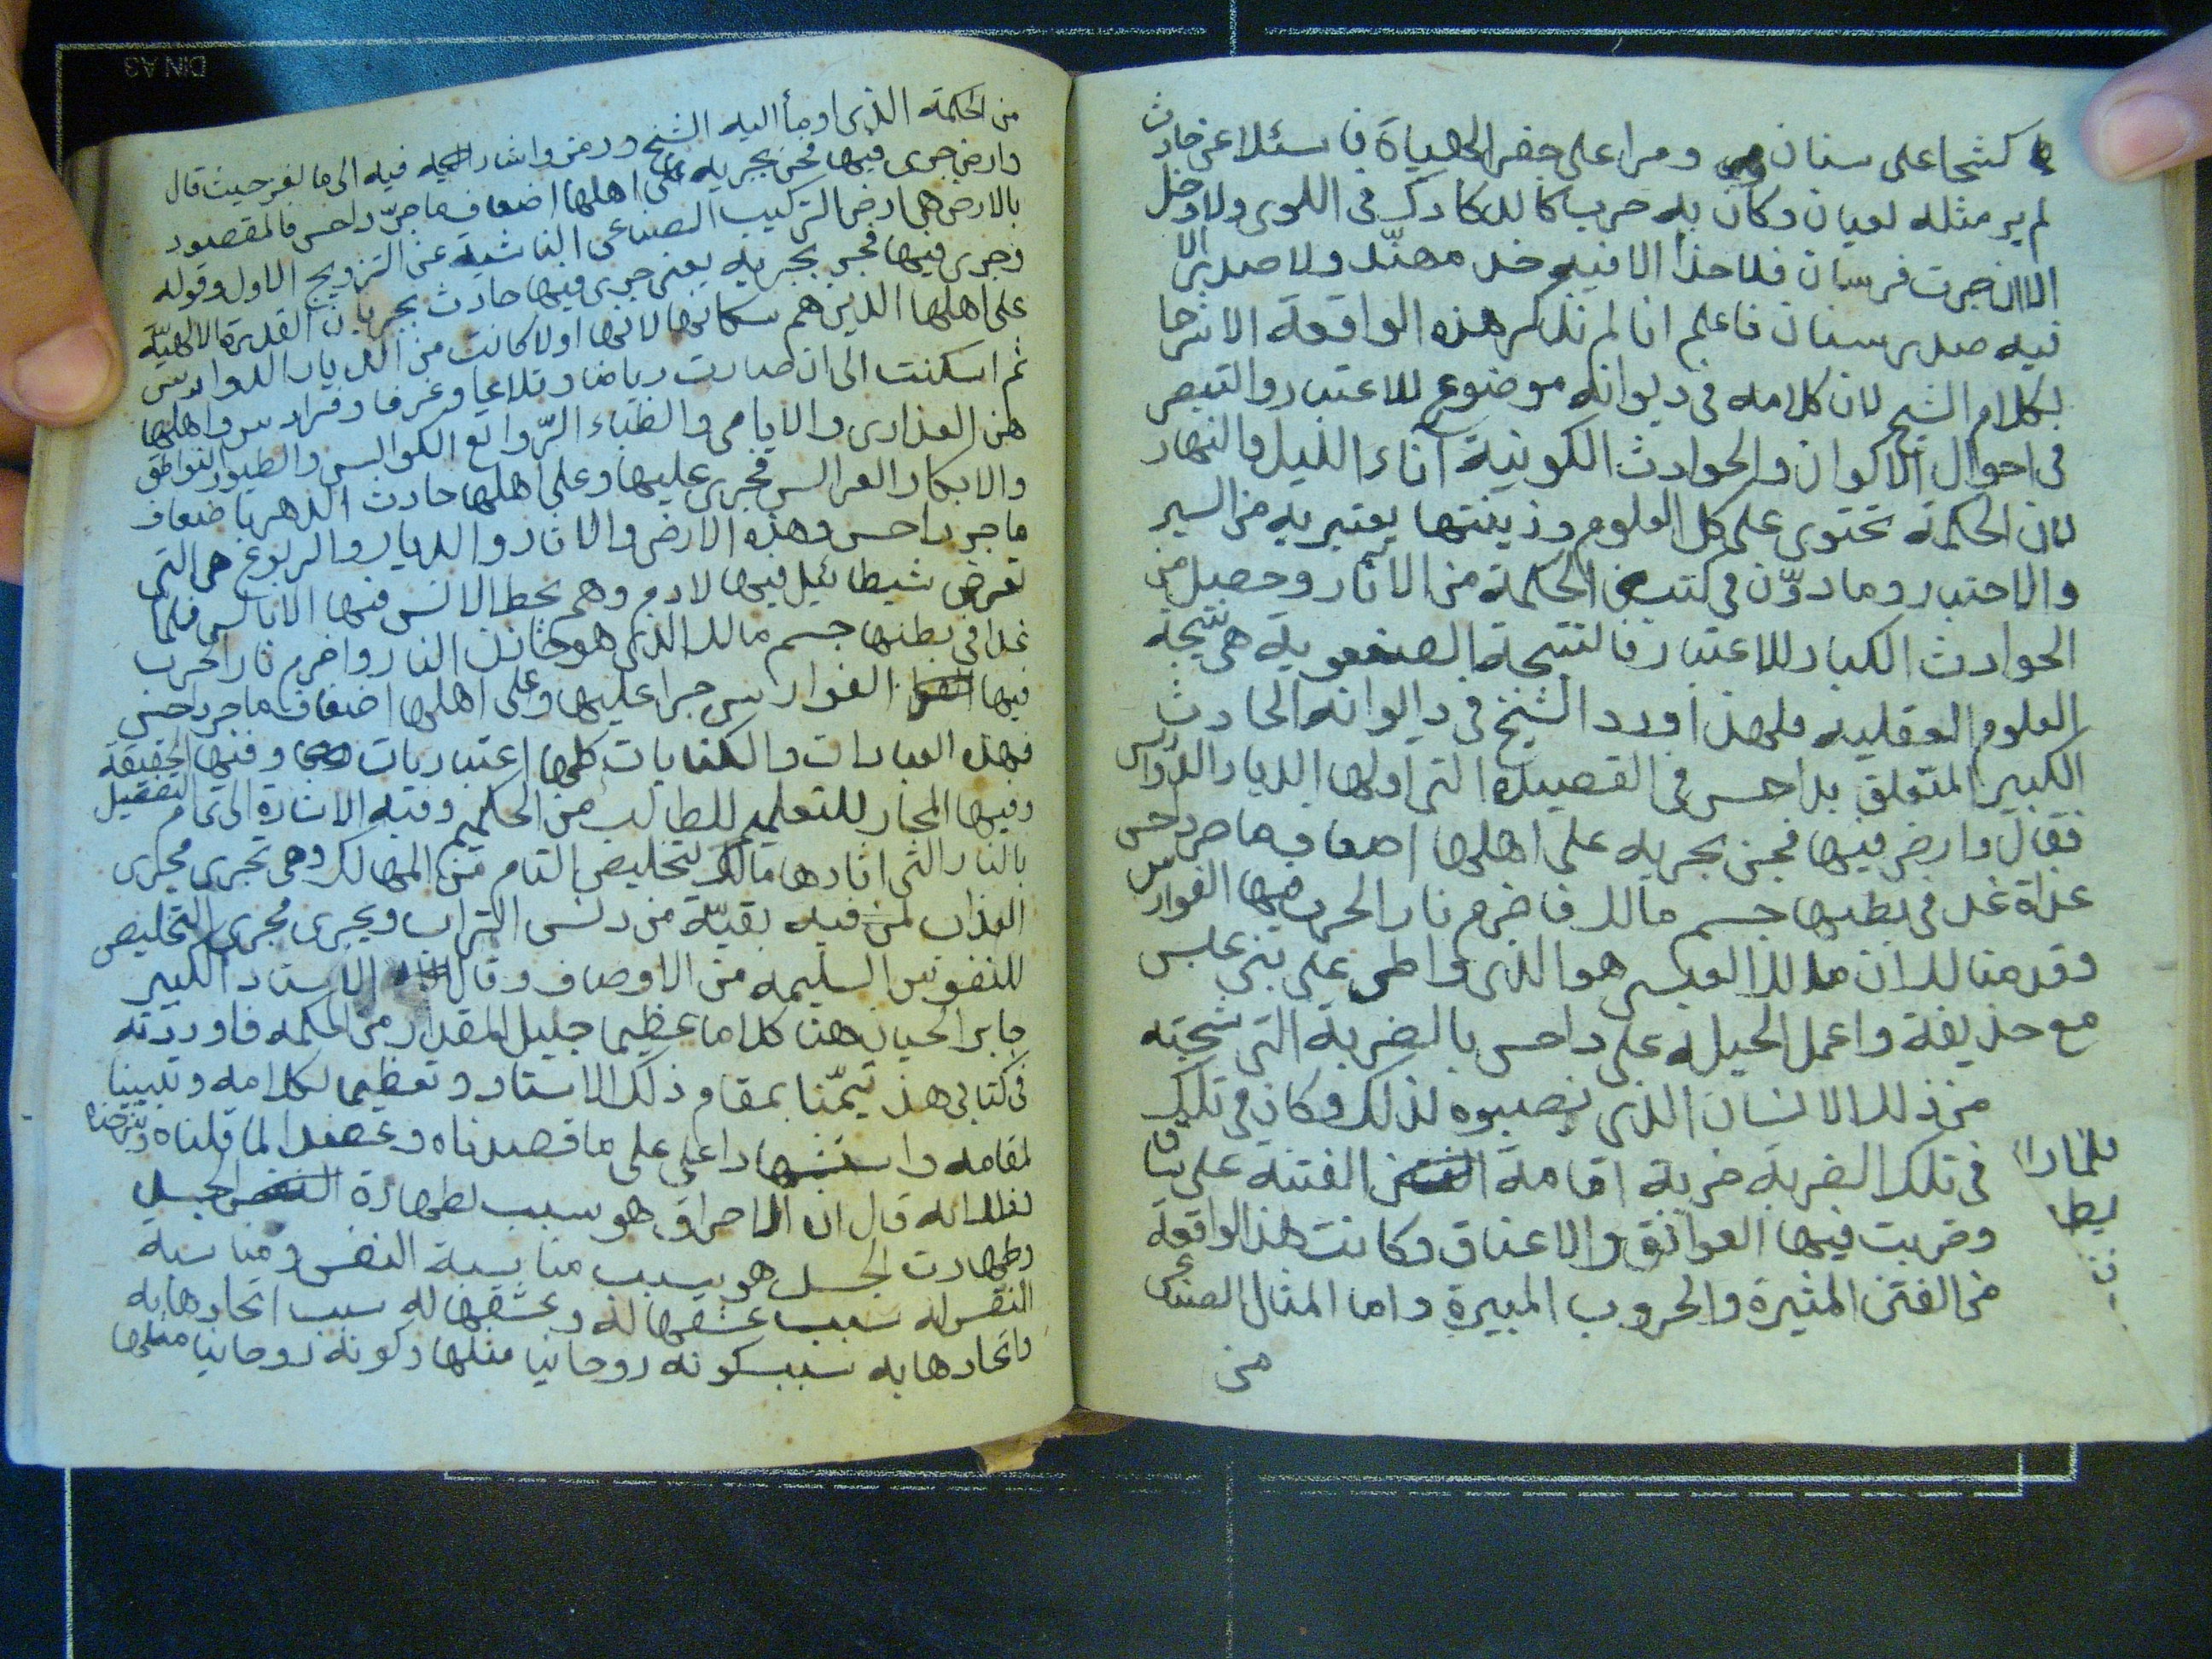 كشحا على سنان ومرا على جفر الهياة فاسئلا عن حادث
لم ير مثله لعيان وكان به حرب كالدكادك في اللوى ولا دخل
الا ان ضربت فرسان فلا خذا الا فيه خد مهند ولا صدر الا
فيه صدر سنان فاعلم انا لم نذكر هذه الواقعة الا شرحا
لكلام الشيخ لان كلامه في ديوانه موضوع للاعتبار والتبصر
في احوال الاكوان والحوادث الكونية آناء الليل والنهار
لان الحكمة تحتوى على كل العلوم وزينتها يعتبر به من السير
والاختبار وما دوّن في كتب الحكمة من الآثار وحصل من
الحوادث الكبار للاعتبار فالنتيجة الصنعوية هي نتيجة
العلوم العقلية فلهذا اورد الشيخ في ديوانه الحادث
الكبير المتعلق بداحس في القصيدة التي اولها الديار الدوارس
فقال وارض فيها فجن بجربه على اهلها اضعاف ما جر داحس
غداة غد في بطنها جسم مالك فاضرم نار الحرب فيها الفوارس
وقدمنا لك ان مالك العبسى هو الذى واطى على بنى عبس
مع حذيفة واعمل الحيلة على داحس بالضربة التي شجته
من ذلك الانسان الذى نصبوه لذلك وكان في تلك
في تلك الضربة ضربة اقامة الفتنة على ساق
وضربت فيها العواتق والاعناق وكانت هذه الواقعة
من الفتن المثيرة والحروب المبيرة واما المثال الصناعى
من
من الحكمة الذى اومأ اليه الشيخ ورمز واشار فيه الى ما لغز حيث قال
وارض جرى فيها فجن بجربه على اهلها اضعاف ما جرّ داحس فالمقصود
بالارض هي ارض التركيب الصناعى الناشية عن التزويج الاول وقوله
وجرى فيها فجر بجربه يعنى جرى فيها حادث بجريان القدرة الالهيّة
على اهلها الذين هم سكانها لانها اولا كانت من الديار الدوارس
ثم اسكنت الى ان صارت رياضا وتلاعا وغرفا وفرادس واهلها
هن العذارى والايامى والظباء الرّواتع الكوانس والطيور النواطق
والابكار العرائس فجرى عليها وعلى اهلها حادث الدهر باضعاف
ما جر داحس وهذه الارض والاثار والديار والربوع هي التى
تعرض شيطائيل فيها لادم وهم بحط الانس فيها الابالس فلما
غدا في بطنها جسم مالك الذى هو خازن النار واضرم نار الحرب
فيها الفوارس جرا عليها وعلى اهلها اضعاف ما جر داحس
فهذه العبارات والكنايات كلها اعتباريات وفيها الحقيقة
وفيها المجاز للتعليم للطالب من الحكيم وفيه الاشارة الى تمام التفصيل
بالنار التى اثارها مالك لتخليص التام من المهالك وهي تجرى مجرى
العذاب لمن فيه بقيّة من دنس التراب ويجرى مجرى التخليص
للنفوس السليمه من الاوصاف وقال الاستاد الكبير
جابر بن حيان هنا كلاما عظيما جليل المقدار من الحكمه فاوردته
في كتابى هذا تيمّنا بمقام ذلك الاستاد وتعظيما لكلامه وتبيينا
لمقامه واستشهادا على ما قصدناه وعضدا لما قلناه وشرحناه
لذلك انه قال ان الاحراق هو سبب لطهارة الجسد
وطهارت الجسد هو بسبب مناسبة النفس ومناسبة
النفس له سبب عشقها له وعشقها له سبب اتحادها به
واتحادها به سبب كونه روحانيا مثلها وكونه روحانيا مثلها